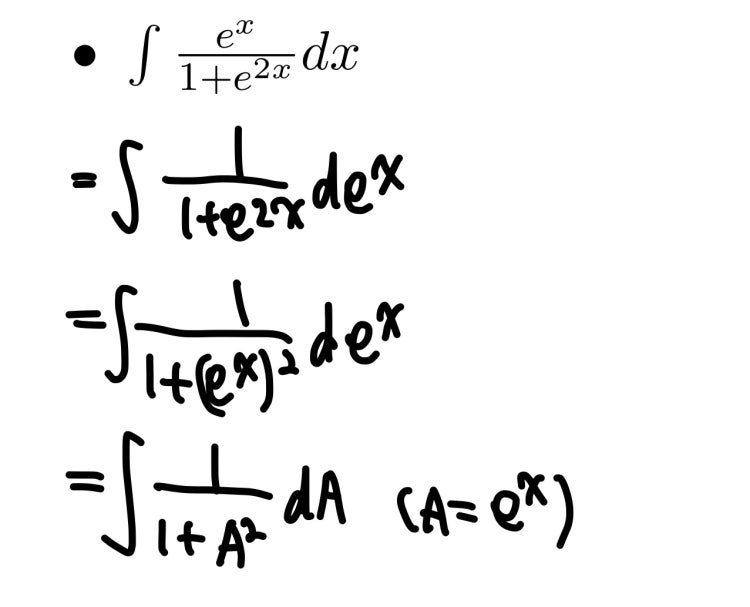 • ∫ e^x/(1+e^{2x}) dx
= ∫ 1/(1+e^{2x}) de^x
= ∫ 1/(1+(e^x)^2) de^x
= ∫ 1/(1+A^2) dA (A=e^x)